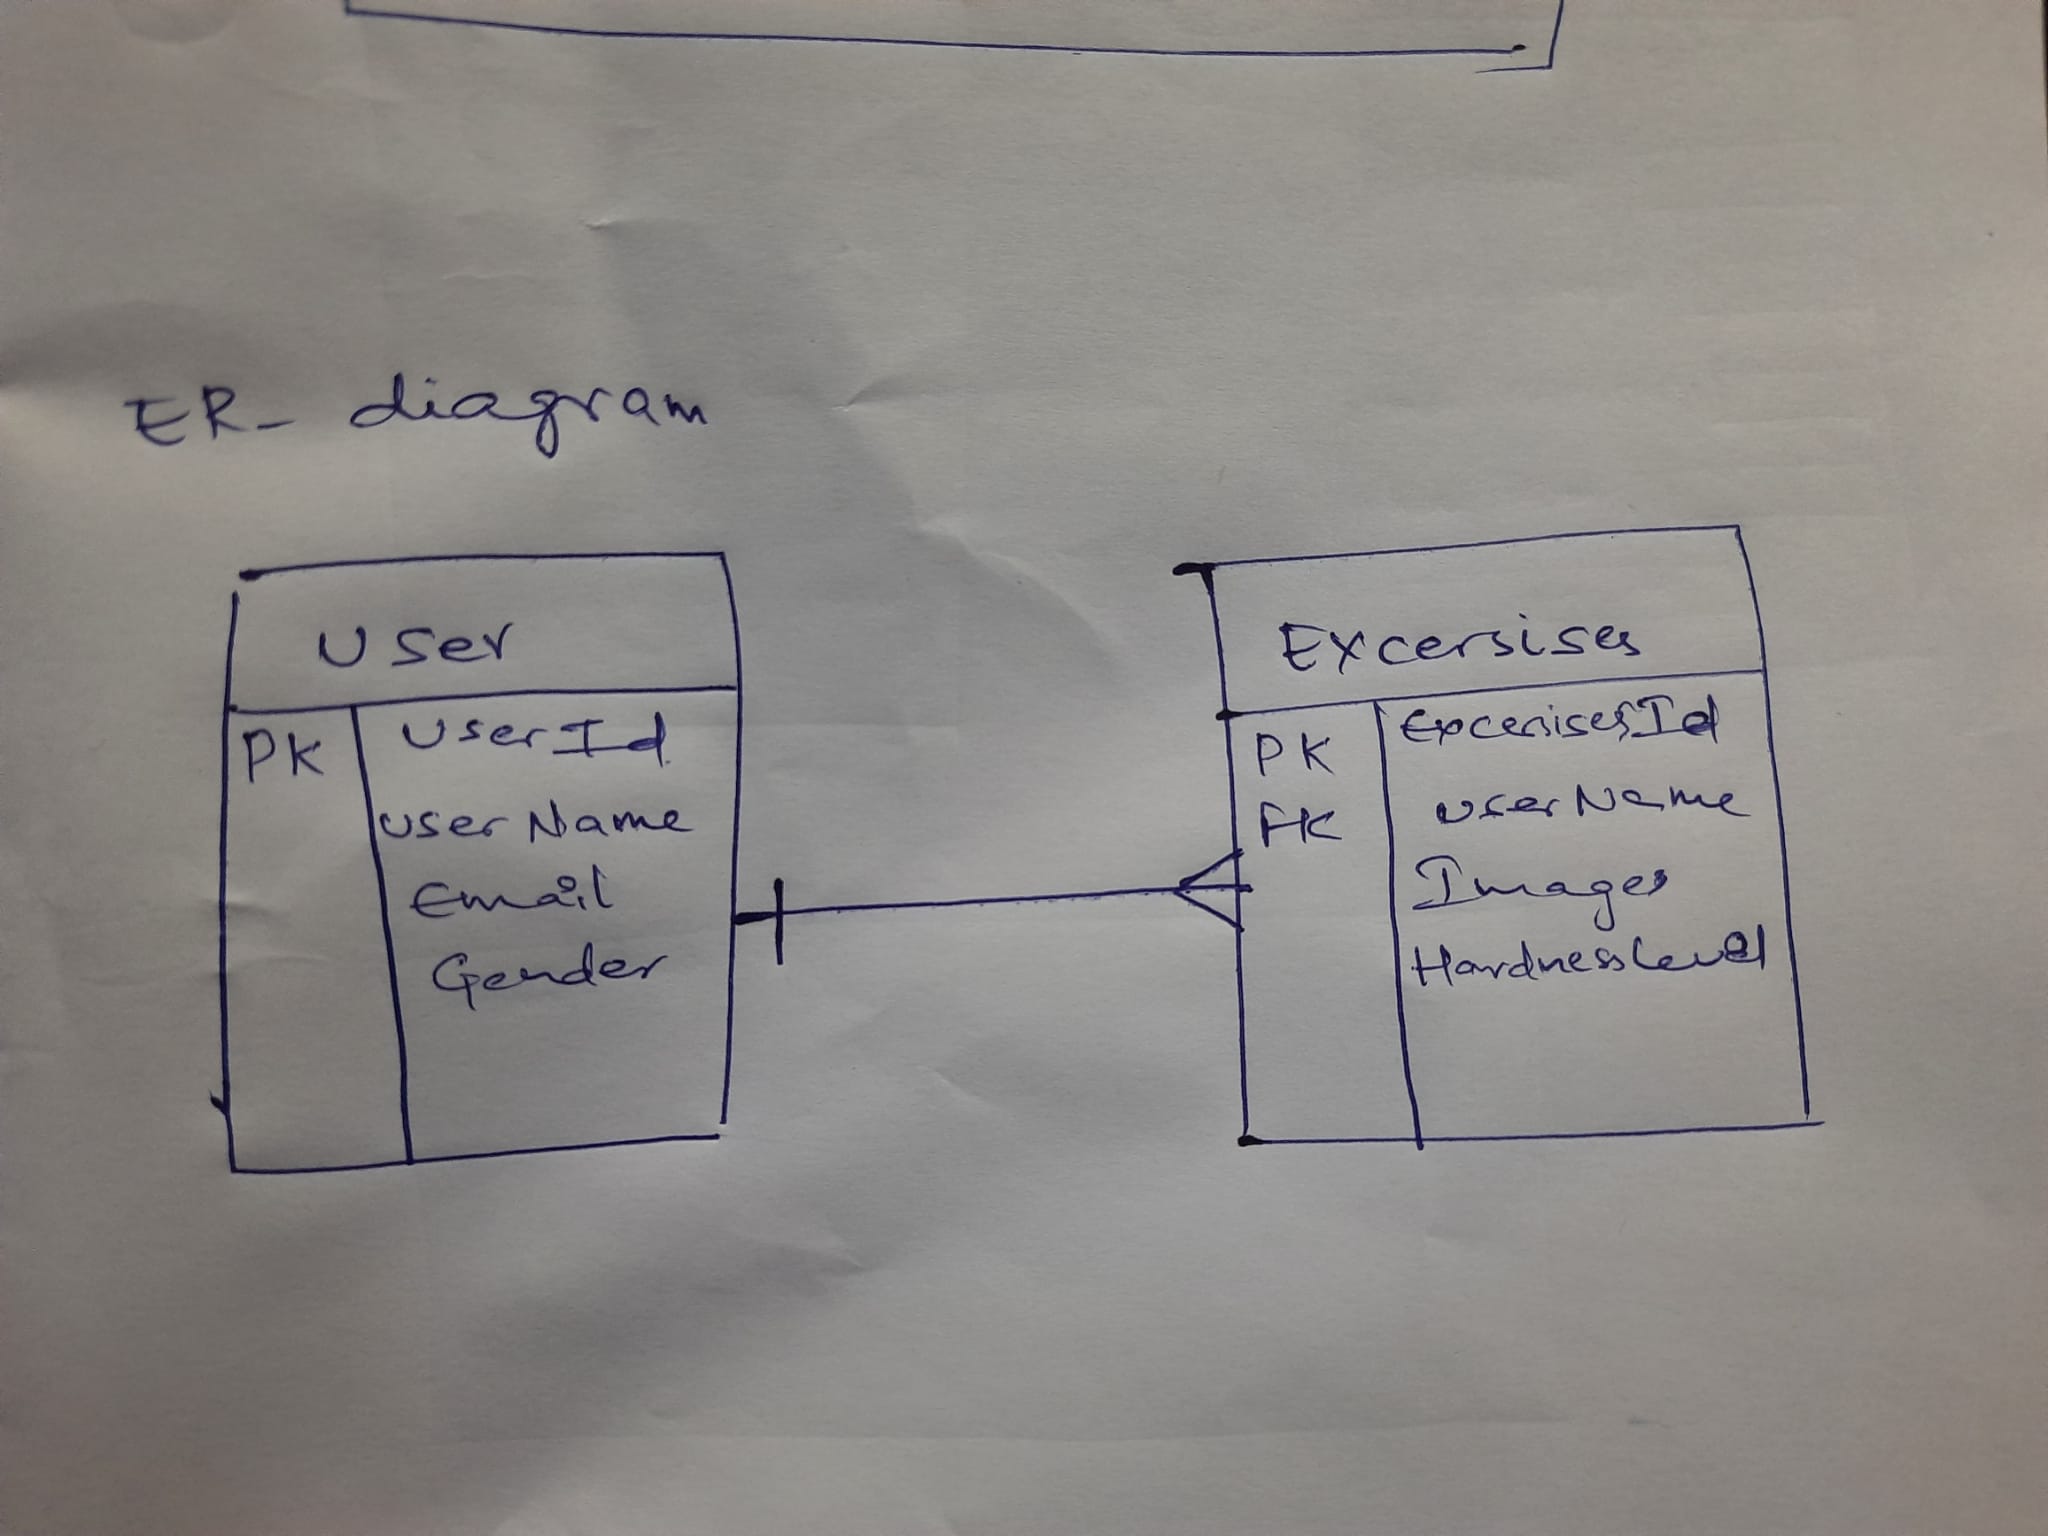 ER- diagram
User
PK UserId
userName
Email
Gender
Excersises
PK ExcersisesId
FK userName
Images
HardnessLevel